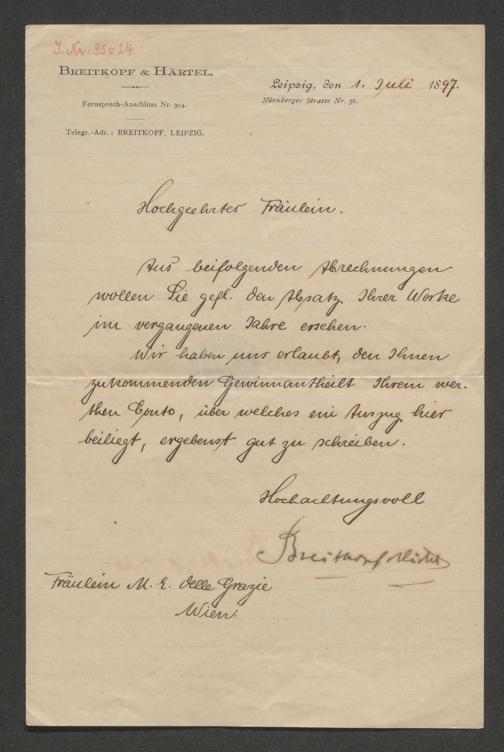 J. Nr. 95024
BREITKOPF & HÄRTEL.
Fernsprech-Anschluss Nr. 304.
Telegr.-Adr.: BREITKOPF, LEIPZIG.
Leipzig, den 1. Juli 1897.
Nürnberger Strasse Nr. 36.
Hochgeehrtes Fräulein.
Aus beifolgenden Abrechnungen
wollen Sie gefl. den Absatz Ihrer Werke
im vergangenen Jahre ersehen.
Wir haben uns erlaubt, den Ihnen
zukommenden Gewinnantheilt Ihrem wer-
then Conto, über welches ein Auszug hier
beiliegt, ergebenst gut zu schreiben.
Hochachtungsvoll
Breitkopf & Härtel
Fräulein M. E. delle Grazie
Wien.